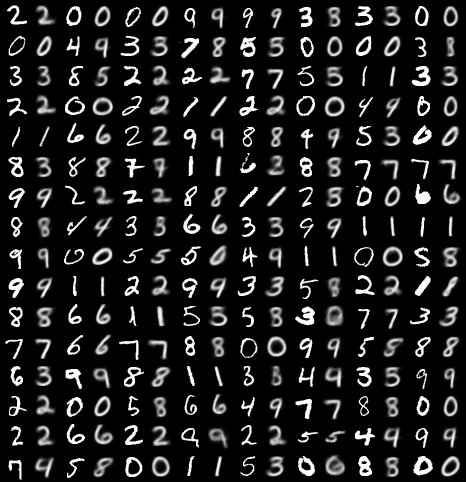 2 2 0 0 0 0 9 9 9 9 3 8 3 3 0 0
0 0 4 9 3 3 7 8 5 5 0 0 0 0 3 8
3 3 8 5 2 2 2 2 7 7 5 5 1 1 3 3
2 2 0 0 2 2 1 1 2 2 0 0 4 9 0 0
1 1 6 6 2 2 9 9 8 8 4 9 5 3 0 0
8 3 8 8 7 7 1 1 6 2 8 8 7 7 7 7
9 9 2 2 2 2 8 8 1 1 2 8 0 0 6 6
8 8 4 4 3 3 6 6 3 3 9 9 1 1 1 1
9 9 0 0 5 5 5 0 4 9 1 1 0 0 5 8
9 9 1 1 2 2 9 9 3 3 5 8 2 2 1
8 8 6 6 1 1 5 5 5 8 3 0 7 7 3 3
7 7 6 6 7 7 8 8 0 0 9 9 5 8 8 8
6 3 9 9 8 8 1 1 3 8 4 9 3 5 9 9
2 2 0 0 5 8 6 6 4 9 7 7 8 8 0 0
2 2 6 6 2 2 9 9 2 2 5 5 4 9 9 9
7 9 5 8 0 0 1 1 5 3 0 0 8 8 0 0